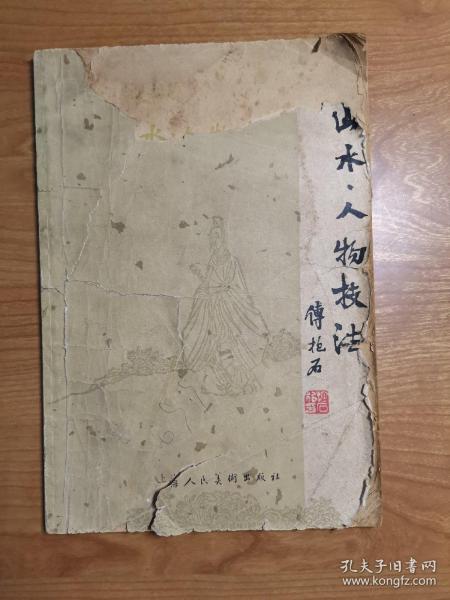 山水·人物技法
傅抱石
上海人民美術出版社
孔夫子旧书网
www.kongfz.com